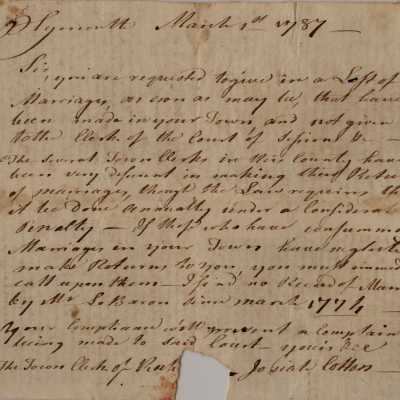 Plymouth March 1st 1787 —
Sir, you are requested to give in a List of
Marriages, as soon as may be, that have
been made in your Town and not given
to the Clerk of the Court of Sessions &c —
The several Town Clerks in this County have
been very deficient in making their Retu
of marriages, though the Law requires th
it be Done annually under a Considerab
Penalty — If those who have consumm
Marriages in your Town have neglect
make Returns to you, you must immed
call upon them — I find no Record of Marr
by Mr LeBaron since march 1774 —
Your compliance will prevent a complain
being made to said Court — yours &c
The Town Clerk of Josiah Cotton —